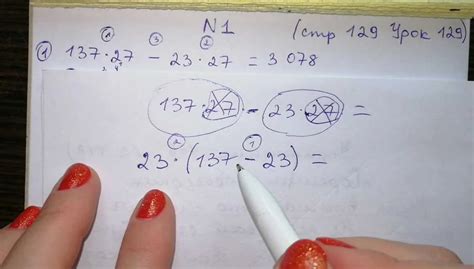 N1 (стр 129 Урок 129)
① ③ ②
① 137·27 − 23·27 = 3 078
137·27 − 23·27 =
② ①
23·(137 − 23) =